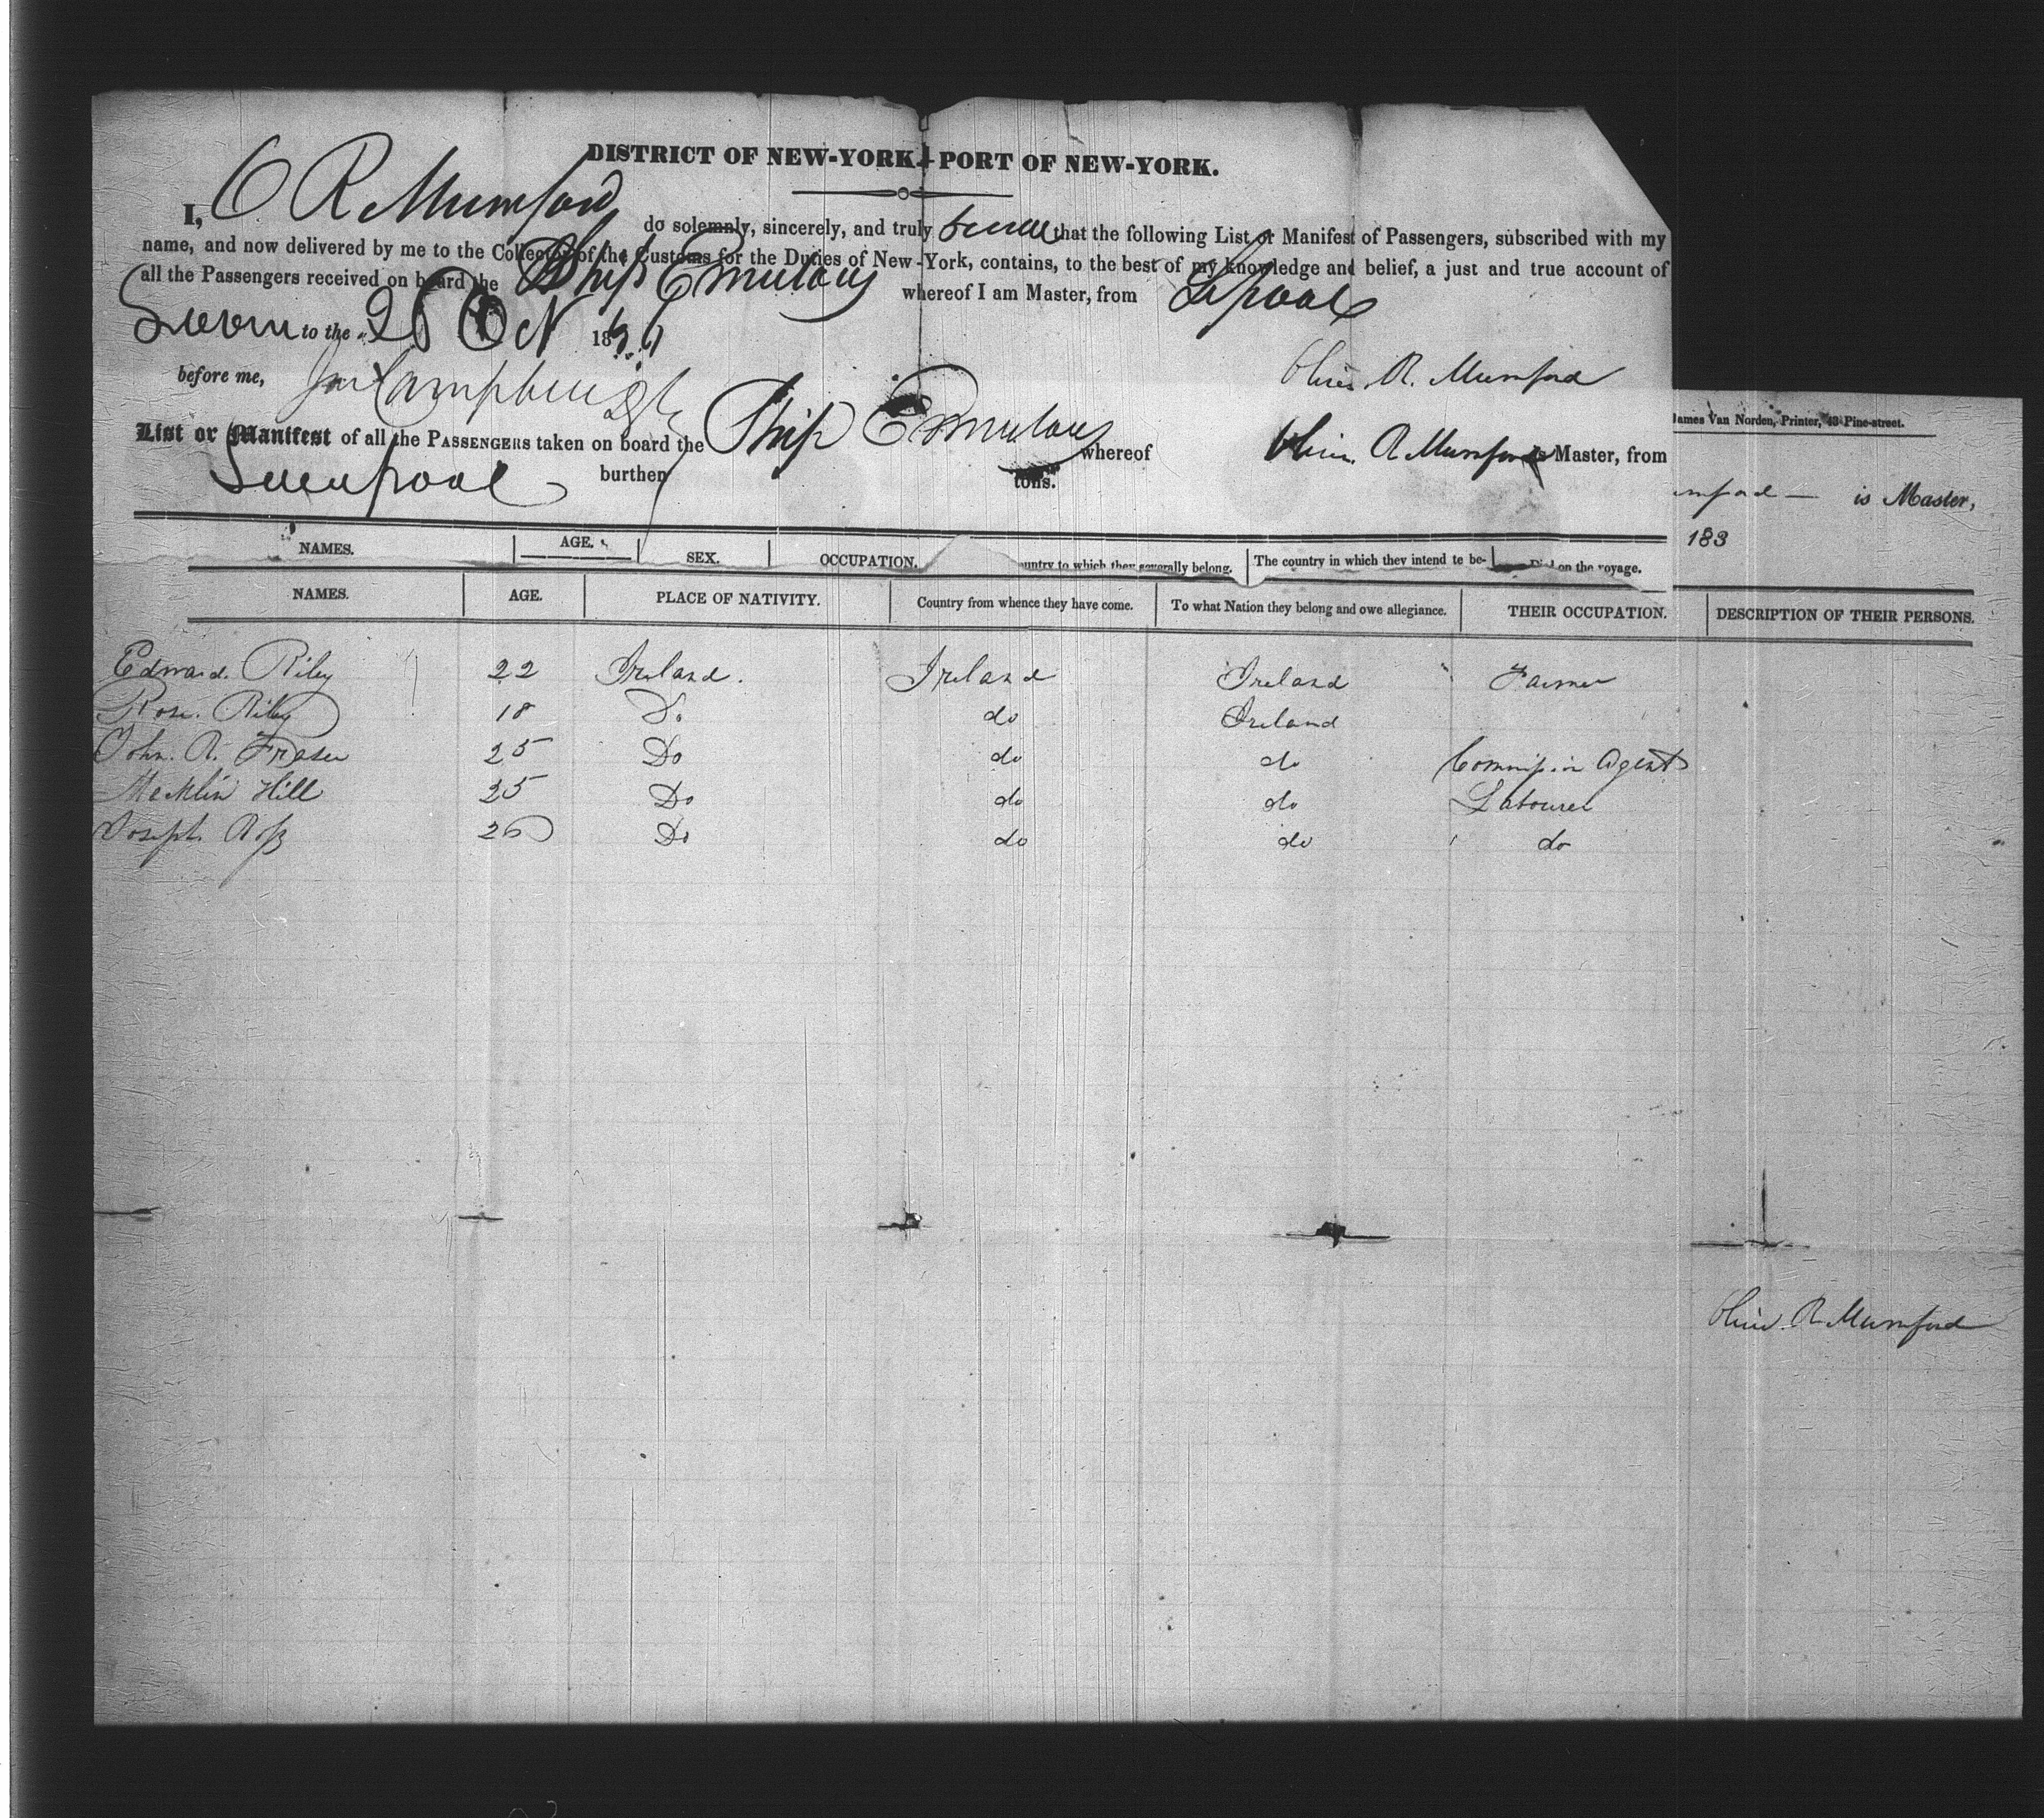 DISTRICT OF NEW-YORK. PORT OF NEW-YORK.
I, O R Mumford do solemnly, sincerely, and truly swear that the following List or Manifest of Passengers, subscribed with my
name, and now delivered by me to the Collector of the Customs for the Duties of New-York, contains, to the best of my knowledge and belief, a just and true account of
all the Passengers received on board the Ship Emulous whereof I am Master, from Lpool
Sworn to the 25 Oct 183
before me, Campbell Oliver R. Mumford
List or Manifest of all the PASSENGERS taken on board the Ship Emulous whereof Oliver R Mumford is Master, from
Liverpool burthen tons.
James Van Norden, Printer, 43 Pine-street.
mford — is Master,
183
NAMES. AGE. SEX. OCCUPATION. untry to which they severally belong. The country in which they intend to be- Died on the voyage.
NAMES. AGE. PLACE OF NATIVITY. Country from whence they have come. To what Nation they belong and owe allegiance. THEIR OCCUPATION. DESCRIPTION OF THEIR PERSONS.
Edward Riley 22 Ireland. Ireland Ireland Farmer
Rose Riley 18 Do do Ireland
John. R. Fraser 25 Do do do Commission Agent
Macklin Hill 25 Do do do Labourer
Joseph Ross 26 Do do do do
Oliver R Mumford